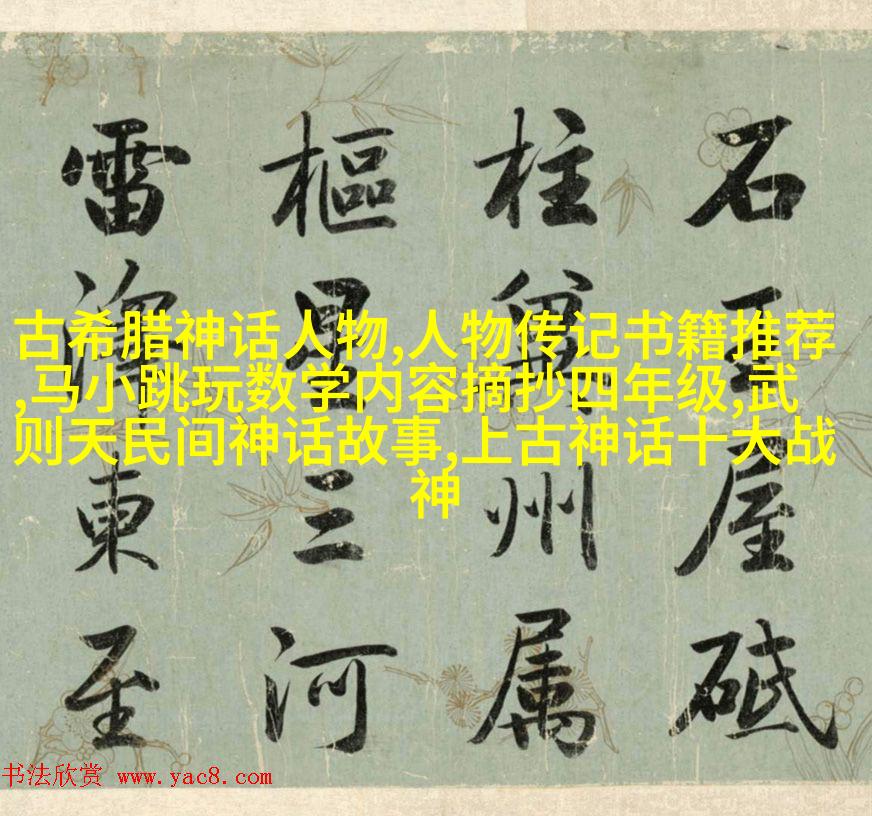 石王屋砥
柱冀州属
樞星三河
雷澤東至
古希腊神话人物,人物传记书籍推荐
,马小跳玩数学内容摘抄四年级,武
则天民间神话故事,上古神话十大战
神
书法欣赏 www.yac8.com